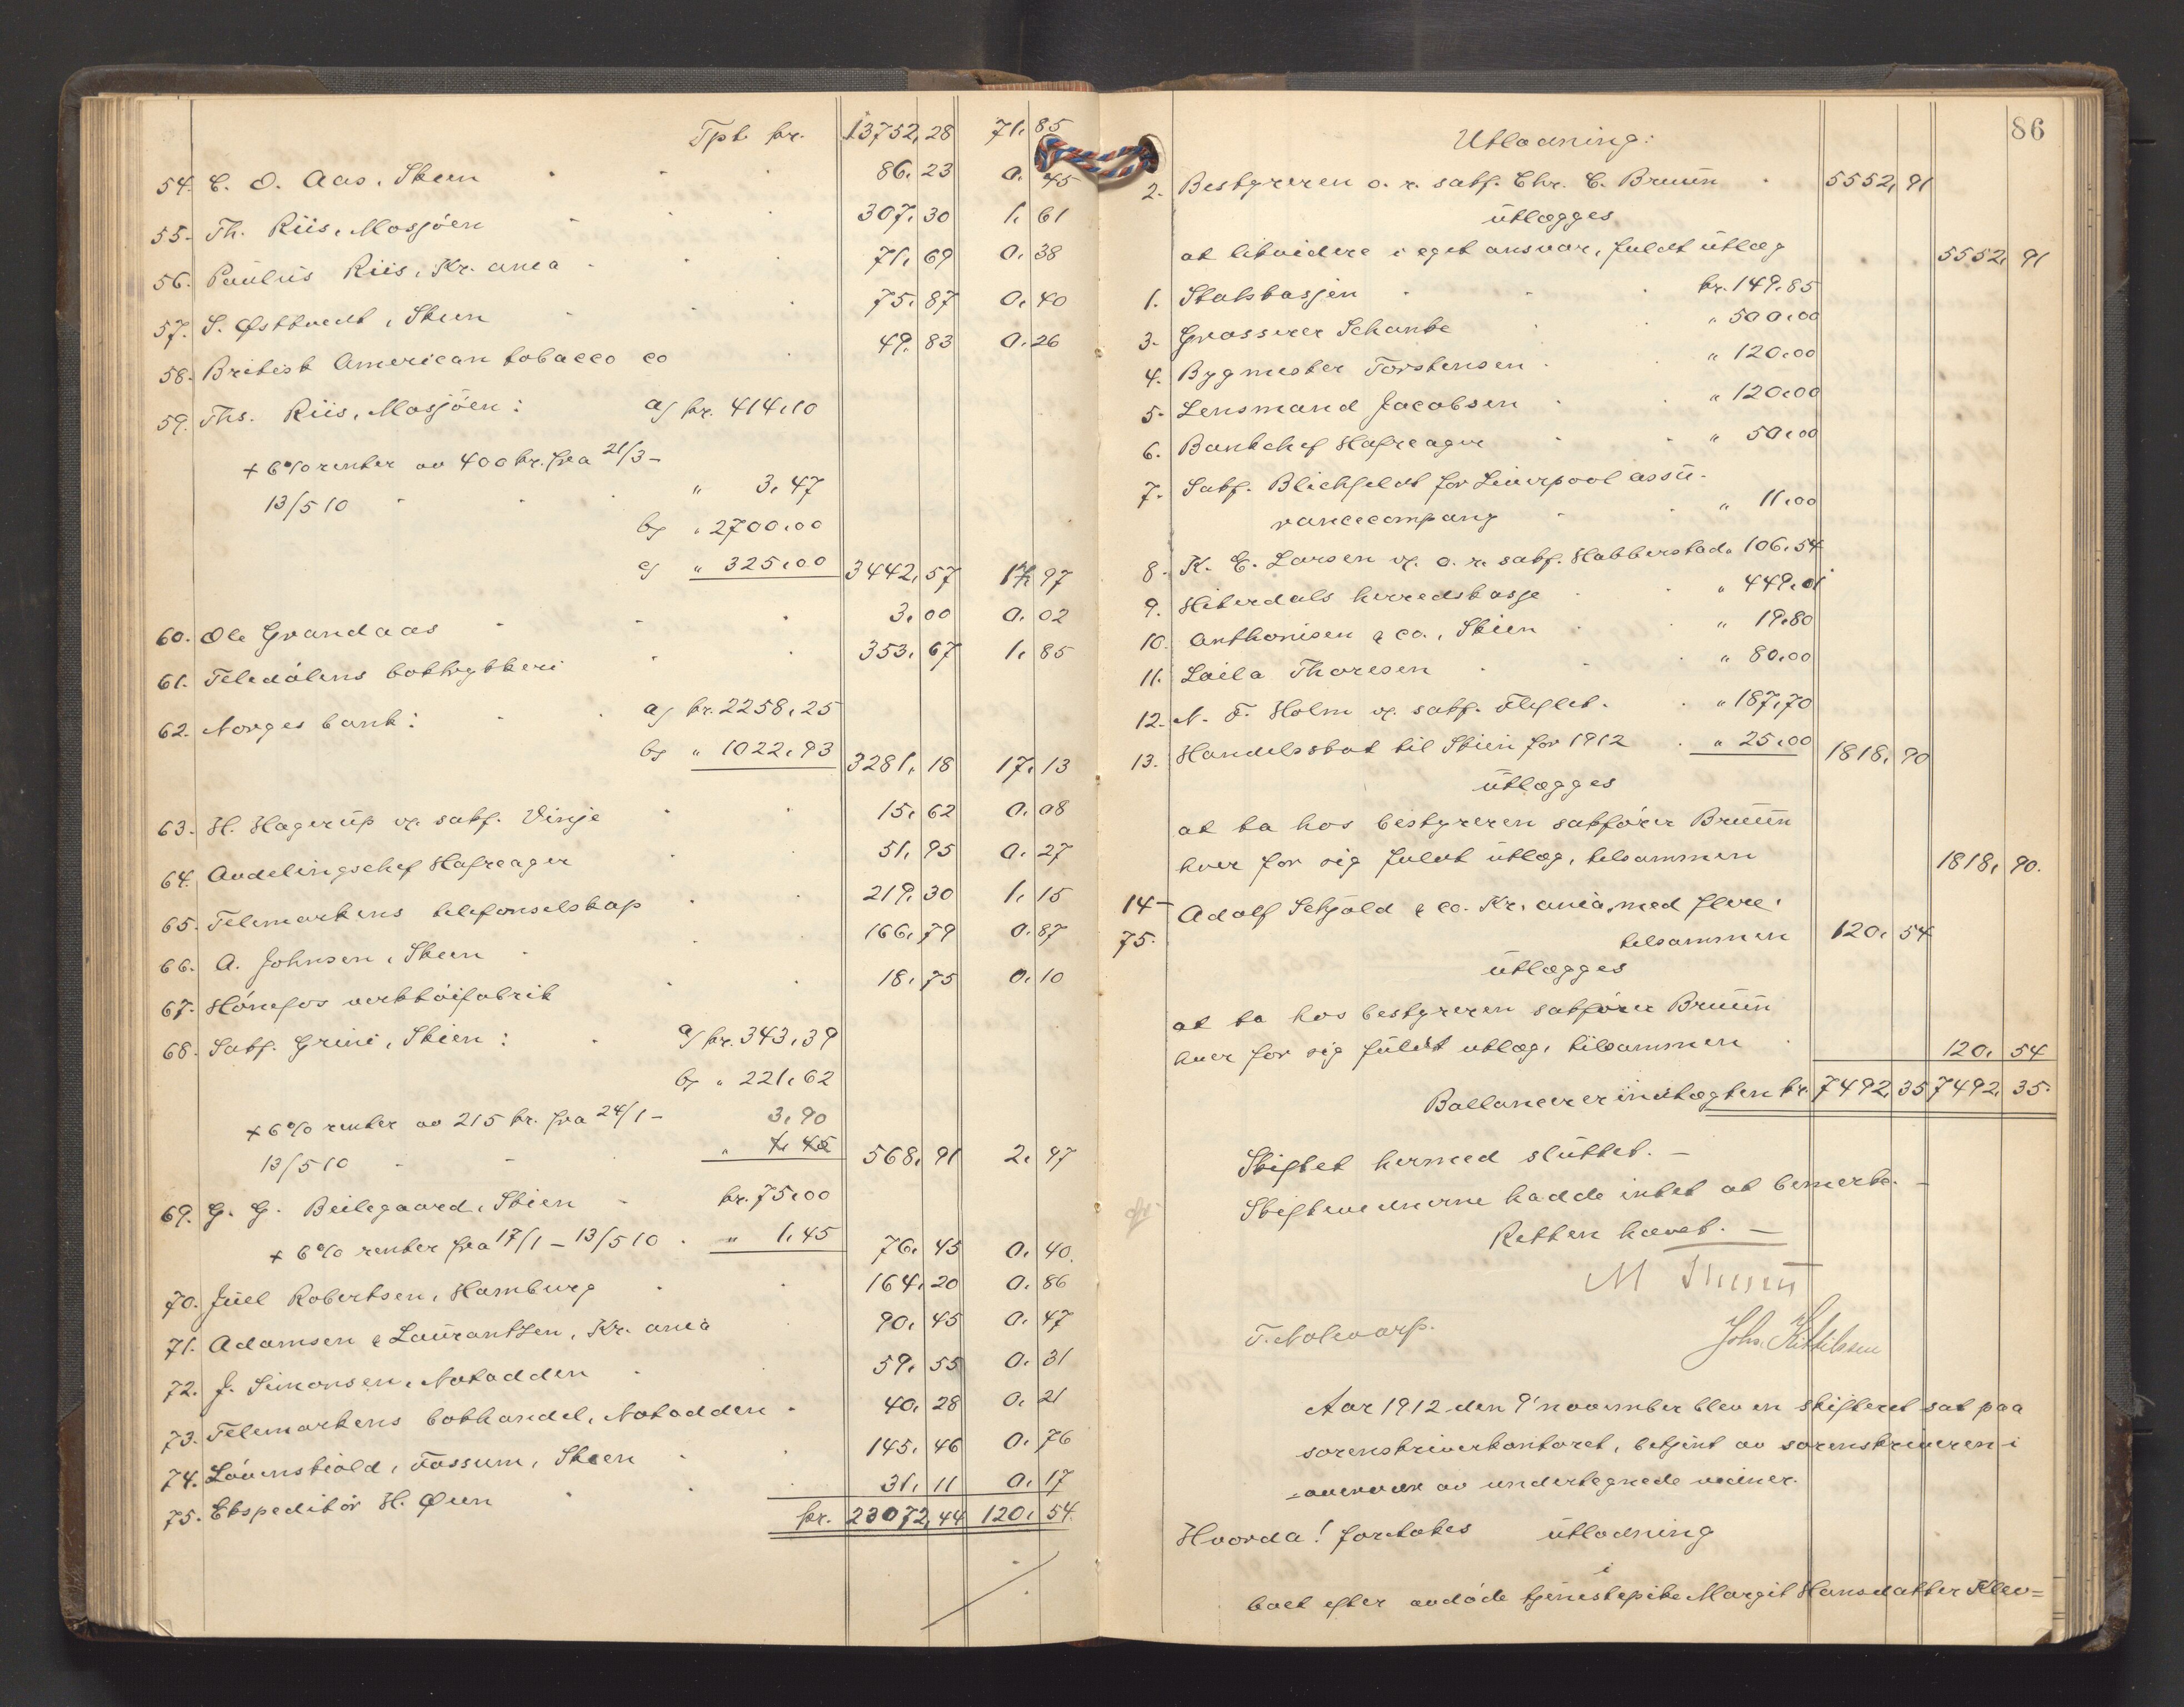 Tpt kr. 13752,28 71,85
54. E. O. Aas, Skien 86,23 0,45
55. Th. Riis, Mosjöen 307,30 1,61
56. Paulus Riis, Kr.ania 71,69 0,38
57. S. Østtvedt, Skien 75,87 0,40
58. Britisk American tobacco co 49,83 0,26
59. Ths. Riis, Mosjöen: a) kr. 414,10
+ 6% renter av 400 kr. fra 21/3 -
13/5 10 " 3,47
b) " 2700,00
c) " 325,00 3442,57 17,97
60. Ole Grandaas 3,00 0,02
61. Teledölens boktrykkeri 353,67 1,85
62. Norges bank: a) kr. 2258,25
b) " 1022,93 3281,18 17,13
63. H. Hagerup v. sakf. Vinje 15,62 0,08
64. Avdelingschef Hafreager 51,95 0,27
65. Telemarkens telefonselskap 219,30 1,15
66. A. Johnsen, Skien 166,79 0,87
67. Hönefos verktöifabrik 18,75 0,10
68. Sakf. Grini, Skien: a) kr. 343,39
b) " 221,62
+ 6% renter av 215 kr. fra 24/1 - 3,90
13/5 10 " 568,91 2,97
69. G. G. Beilegaard, Skien kr. 75,00
+ 6% renter fra 17/1 - 13/5 10 " 1,45 76,45 0,40
70. Juel Robertsen, Hamburg 164,20 0,86
71. Adamsen & Laurantzen, Kr.ania 90,45 0,47
72. J. Simonsen, Notodden 59,55 0,31
73. Telemarkens bokhandel, Notodden 40,28 0,21
74. Lövenskiold, Fossum, Skien 145,46 0,76
75. Ekspeditör H. Øien 31,11 0,17
kr. 23072,44 120,54
86
Utlodning:
2. Bestyreren o. r. sakf. Chr. C. Bruun 5552,91
utlægges
at likvidere i eget ansvar, fuldt utlæg 5552,91
1. Statskassen kr. 149,85
3. Grosserer Schanke " 500,00
4. Bygmester Torstensen " 120,00
5. Lensmand Jacobsen " 120,00
6. Bankchef Hafreager " 50,00
7. Sakf. Blichfeldt for Liverpool assu-
rancecompany " 11,00
8. K. E. Larsen v. o. r. sakf. Habberstad " 106,54
9. Hiterdals herredskasse " 449,01
10. Anthonisen & co., Skien " 19,80
11. Laila Thoresen " 80,00
12. N. F. Holm v. sakf. " 187,70
13. Handelsskat til Skien for 1912 " 25,00 1818,90
utlægges
at ta hos bestyreren sakförer Bruun
hver for sig fuldt utlæg, tilsammen 1818,90.
14- Adolf Schjøld & co. Kr.ania, med flere,
75. tilsammen 120,54
utlægges
at ta hos bestyreren sakförer Bruun
hver for sig fuldt utlæg, tilsammen 120,54
Ballancerer indtægten kr. 7492,35 7492,35.
Skiftet hermed sluttet. -
Skiftevidnerne hadde intet at bemerke. -
Retten hævet. -
T. Nolevarp.
Joh. Kittilsen
Aar 1912 den 9' november blev en skifteret sat paa
sorenskriverkontoret, betjent av sorenskriveren i
overvær av undertegnede vidner.
Hvorda! foretokes utlodning
i
boet efter avdöde tjenestepike Margit Hansdatter Klev=